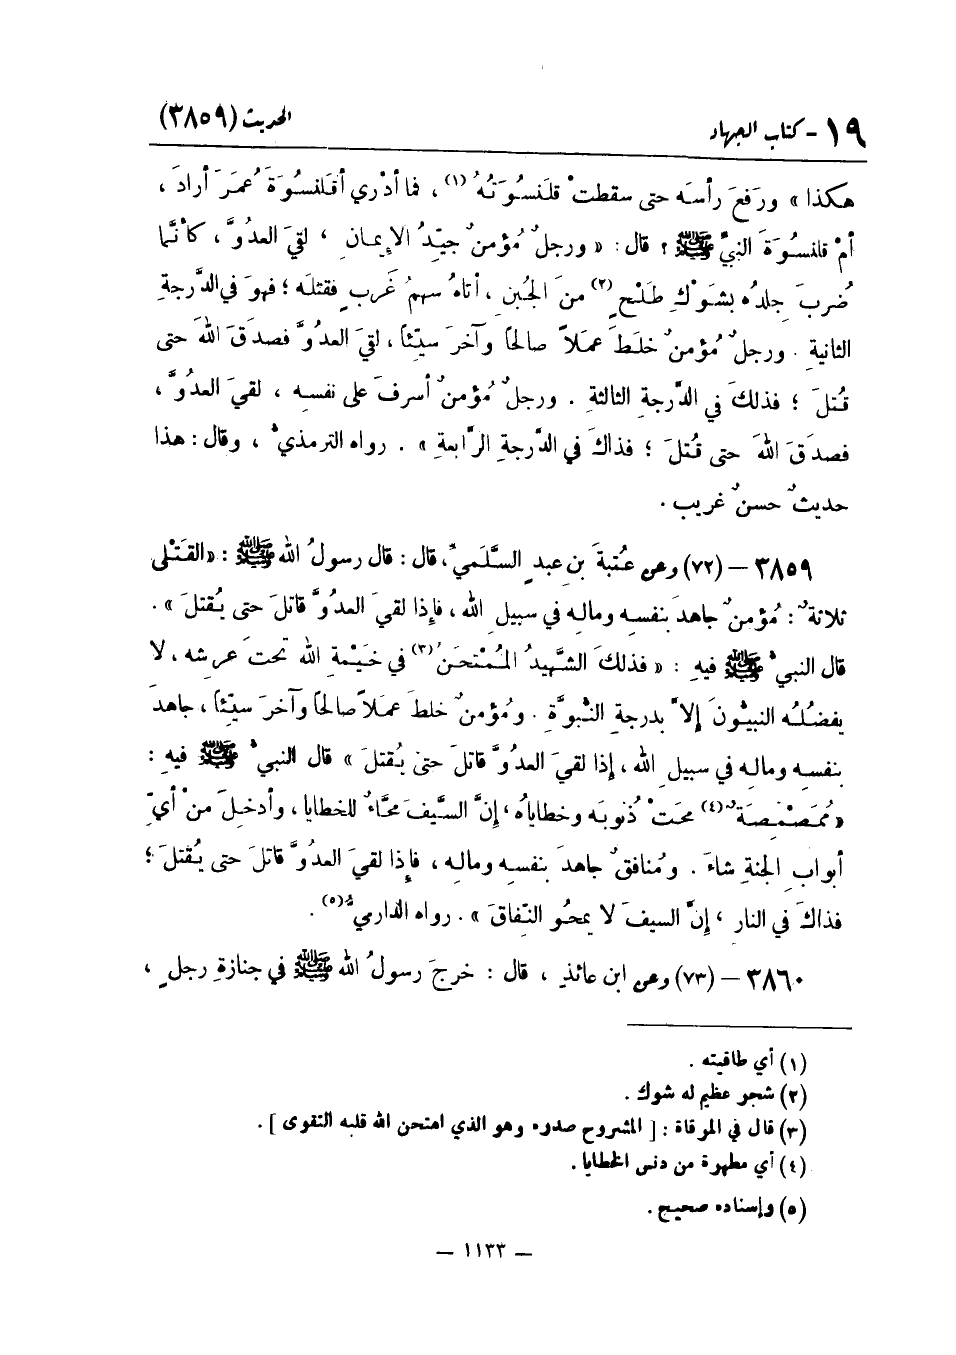 ١٩ - كتاب الجهاد
الحديث (٣٨٥٩)
هكذا » ورفعَ رأسَه حتى سقطتْ قلَنسُوَتُهُ (١) ، فما أدْري أقَلنسُوَةَ عُمَرَ أرادَ ،
أمْ قلنسُوَةَ النبيِّ ﷺ ؟ قال : « ورجلٌ مُؤمنٌ جيّدُ الإيمانِ ، لقيَ العدُوَّ ، كأنَّما
ضُربَ جِلدُه بشَوْكِ طَلْحٍ (٢) منَ الجُبنِ ، أتاهُ سهمُ غَربٍ فقتلَه ؛ فهوَ في الدَّرجةِ
الثانية . ورجلٌ مُؤمنٌ خلَطَ عمَلاً صالحاً وآخرَ سيّئاً ، لقيَ العدُوَّ فصدَقَ اللهَ حتى
قُتلَ ؛ فذلكَ في الدَّرجةِ الثالثةِ . ورجلٌ مُؤمنٌ أسرفَ على نفسِه ، لقيَ العدُوَّ ،
فصدَقَ اللهَ حتى قُتلَ ؛ فذاكَ في الدَّرجةِ الرَّابعةِ » . رواه الترمذيُّ ، وقال : هذا
حديثٌ حسنٌ غريب .
٣٨٥٩ – (٧٢) وعن عُتبةَ بنِ عبدٍ السَّلَميِّ، قال : قال رسولُ الله ﷺ : « القَتْلى
ثلاثةٌ : مُؤمنٌ جاهدَ بنفسِه ومالِه في سبيلِ الله ، فإذا لقيَ العدُوَّ قاتلَ حتى يُقتلَ » .
قال النبيُّ ﷺ فيهِ : « فذلكَ الشَّهيدُ المُمْتحَنُ (٣) في خَيْمةِ الله تحتَ عرشِه ، لا
يفضُلُه النبيُّونَ إلاَّ بدرجةِ النُّبوَّةِ . ومُؤمنٌ خلطَ عمَلاً صالحاً وآخرَ سيّئاً ، جاهدَ
بنفسِه ومالِه في سبيلِ الله ، إذا لقيَ العدُوَّ قاتلَ حتى يُقتلَ » قال النبيُّ ﷺ فيهِ :
« مُمَصْمِصَةٌ (٤) محَتْ ذُنوبَه وخطاياهُ ، إنَّ السَّيفَ محَّاءٌ للخطايا ، وأدخلَ منْ أيِّ
أبوابِ الجنةِ شاءَ . ومُنافقٌ جاهدَ بنفسِه ومالِه ، فإذا لقيَ العدُوَّ قاتلَ حتى يُقتلَ ؛
فذاكَ في النارِ ، إنَّ السيفَ لا يمحُو النّفاقَ » . رواه الدارميُّ (٥) .
٣٨٦٠ – (٧٣) وعن ابن عائذٍ ، قال : خرجَ رسولُ الله ﷺ في جنازةِ رجلٍ ،
(١) أي طاقيته .
(٢) شجر عظيم له شوك .
(٣) قال في المرقاة : [ المشروح صدره وهو الذي امتحن الله قلبه التقوى ] .
(٤) أي مطهرة من دنس الخطايا .
(٥) وإسناده صحيح .
– ١١٣٣ –